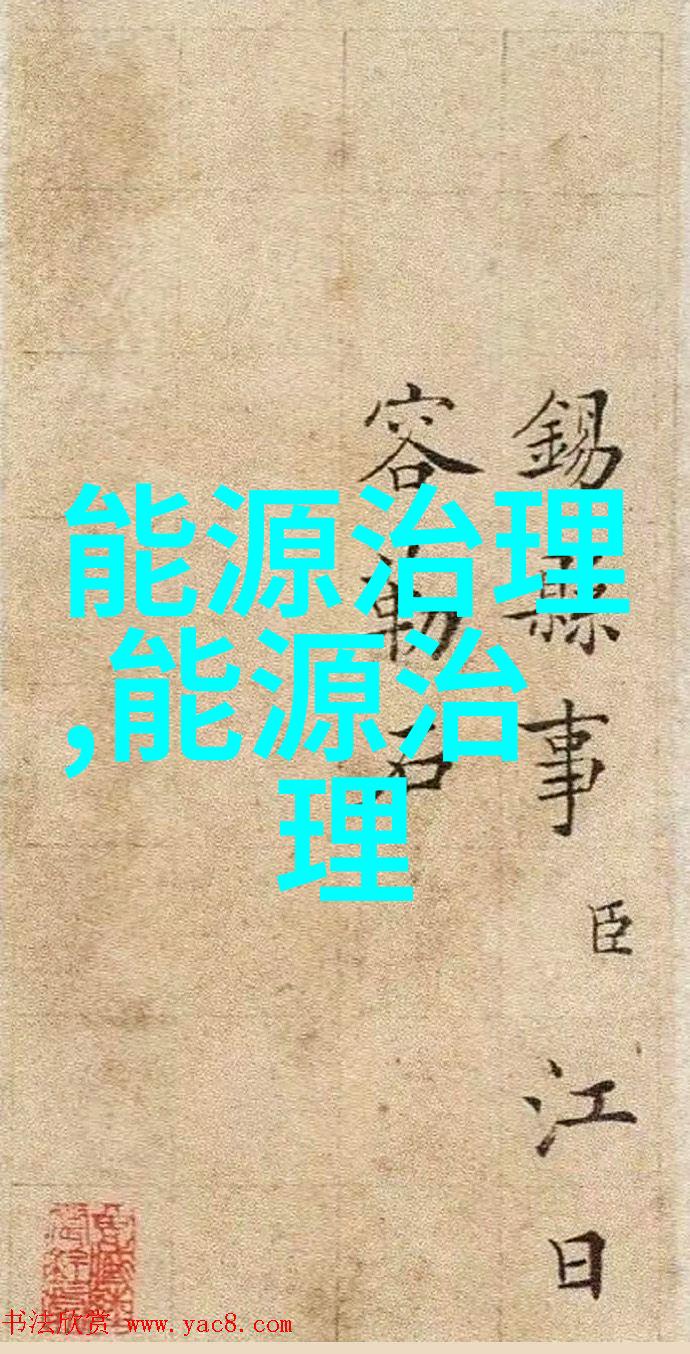 能源治理
,能源治
理
錫縣事臣江日
容勒石
书法欣赏 www.yac8.com